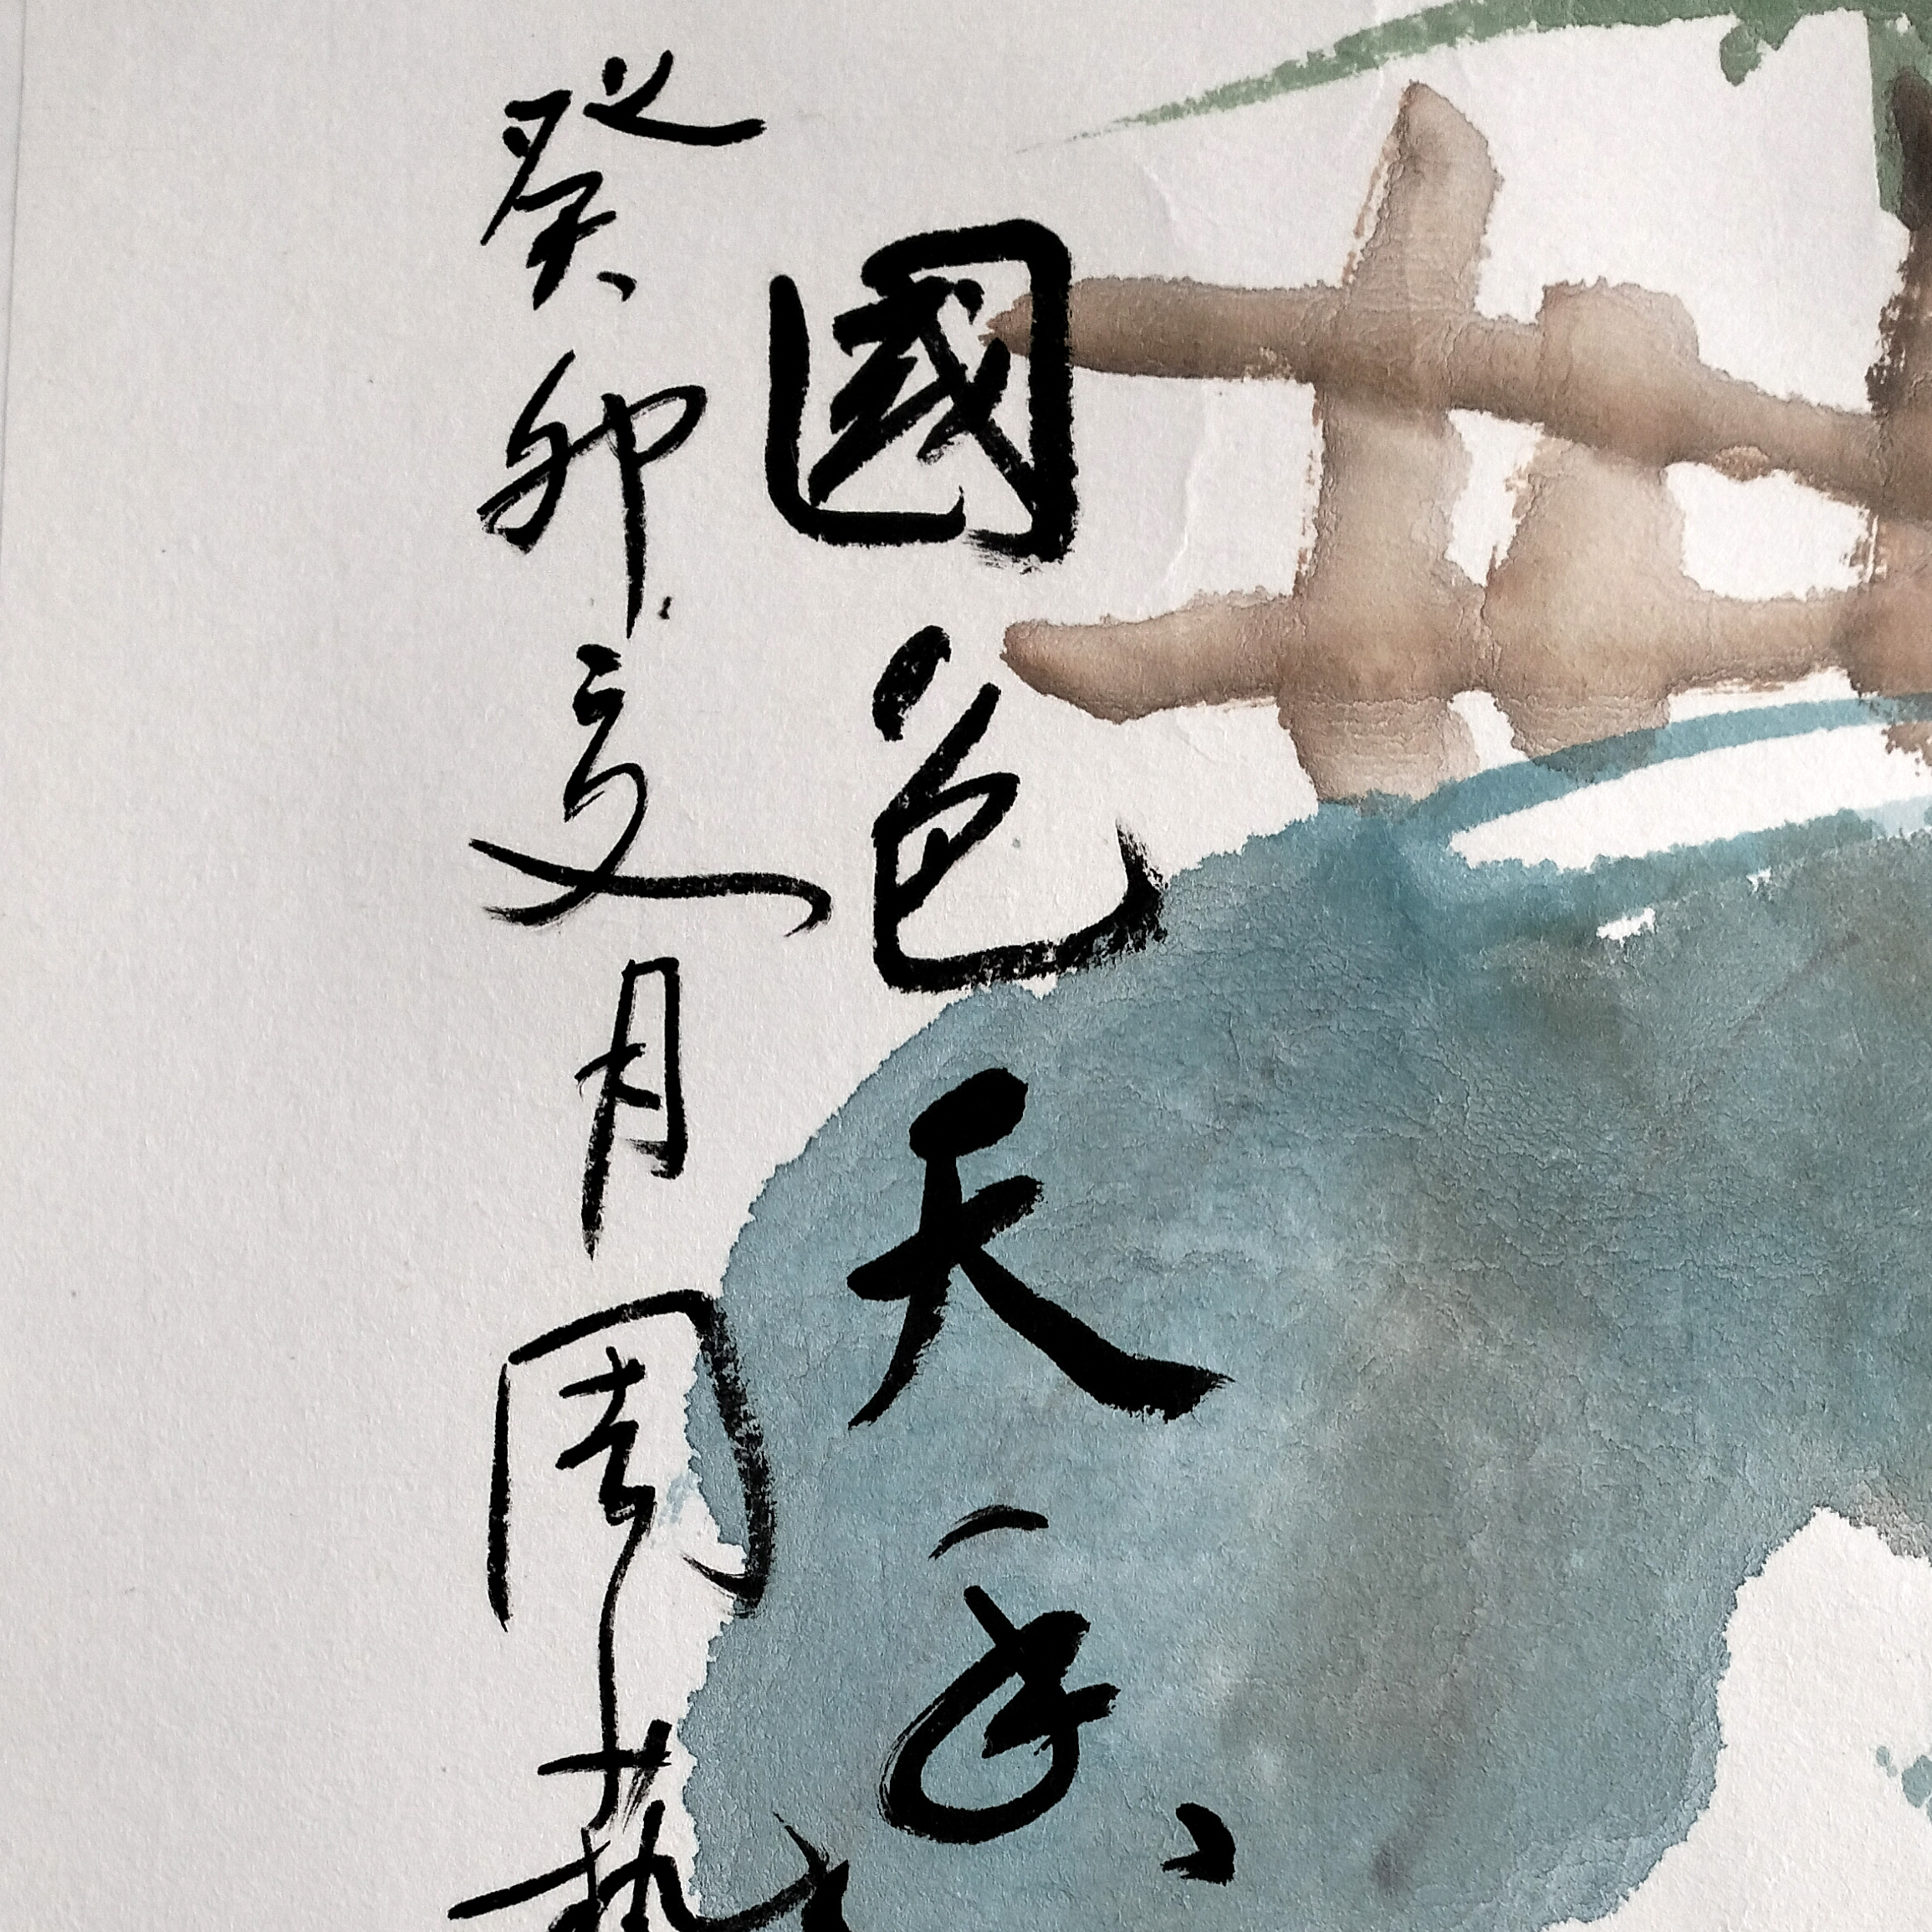 國色天香
癸卯夏月周藝